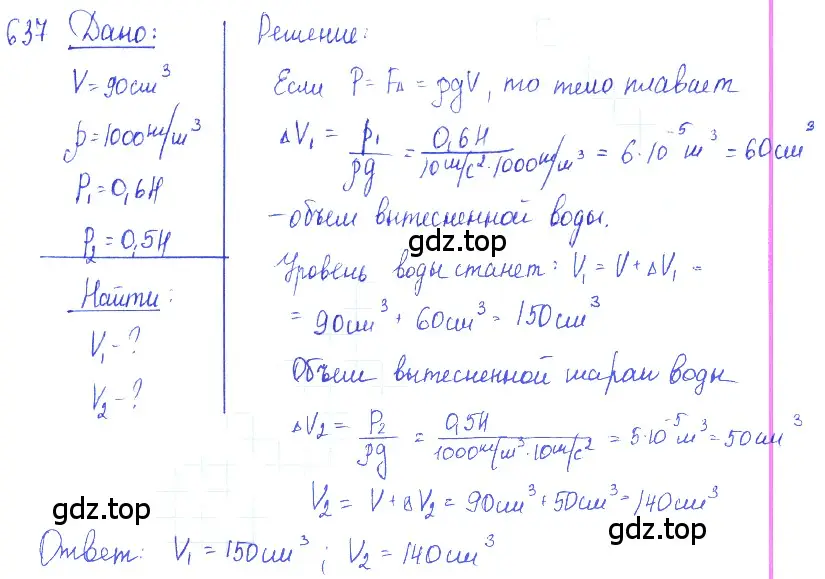 637 Дано:
V = 90 см³
ρ = 1000 кг/м³
P₁ = 0,6 Н
P₂ = 0,5 Н
Найти:
V₁ - ?
V₂ - ?
Решение:
Если P = Fₐ = ρgV, то тело плавает
ΔV₁ = P₁/ρg = 0,6 Н/10 м/с² · 1000 кг/м³ = 6 · 10⁻⁵ м³ = 60 см³
- объем вытесненной воды.
gdz.top
Уровень воды станет: V₁ = V + ΔV₁ =
= 90 см³ + 60 см³ = 150 см³
Объем вытесненной шаран воды
ΔV₂ = P₂/ρg = 0,5 Н/1000 кг/м³ · 10 м/с² = 5 · 10⁻⁵ м³ = 50 см³
V₂ = V + ΔV₂ = 90 см³ + 50 см³ = 140 см³
gdz.top
gdz.top
Ответ: V₁ = 150 см³; V₂ = 140 см³